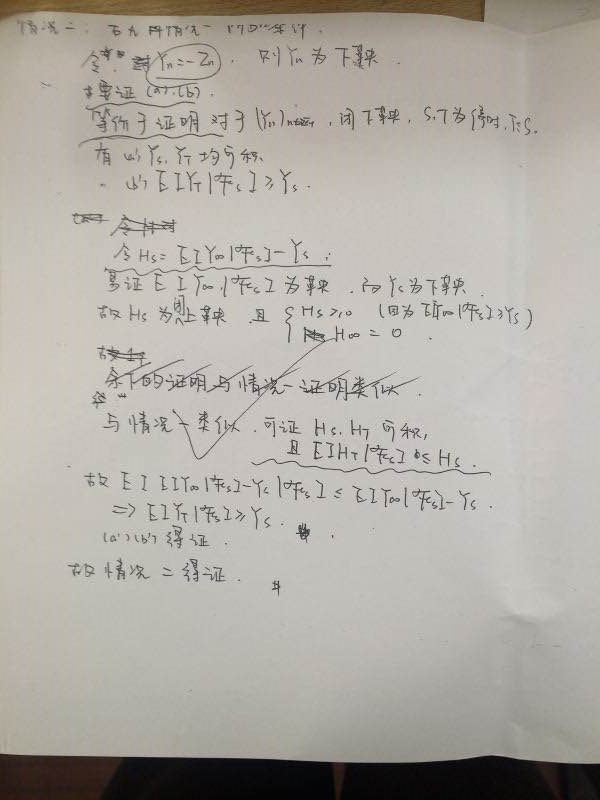 情况二:
令 Yn=-Zn . 则 Yn 为下鞅.
要证 (a).(b).
等价于证明 对于 (Yn) , 闭下鞅, S.T为停时, T≥S.
有 (a') Ys, YT 均可积.
(b') E[YT|Fs]≥Ys.
令 Hs=E[Y∞|Fs]-Ys.
易证 E[Y∞|Fs] 为鞅. 而 Ys 为下鞅.
故 Hs 为闭上鞅. 且 { Hs≥0 (因为 E[Y∞|Fs]≥Ys)
H∞=0.
余下的证明与情况一证明类似.
与情况一类似. 可证 Hs, HT 可积,
且 E[HT|Fs] ≤ Hs.
故 E[E[Y∞|Fs]-Ys|Fs] ≤ E[Y∞|Fs]-Ys.
⇒ E[YT|Fs]≥Ys.
(a')(b') 得证.
故情况二得证. #